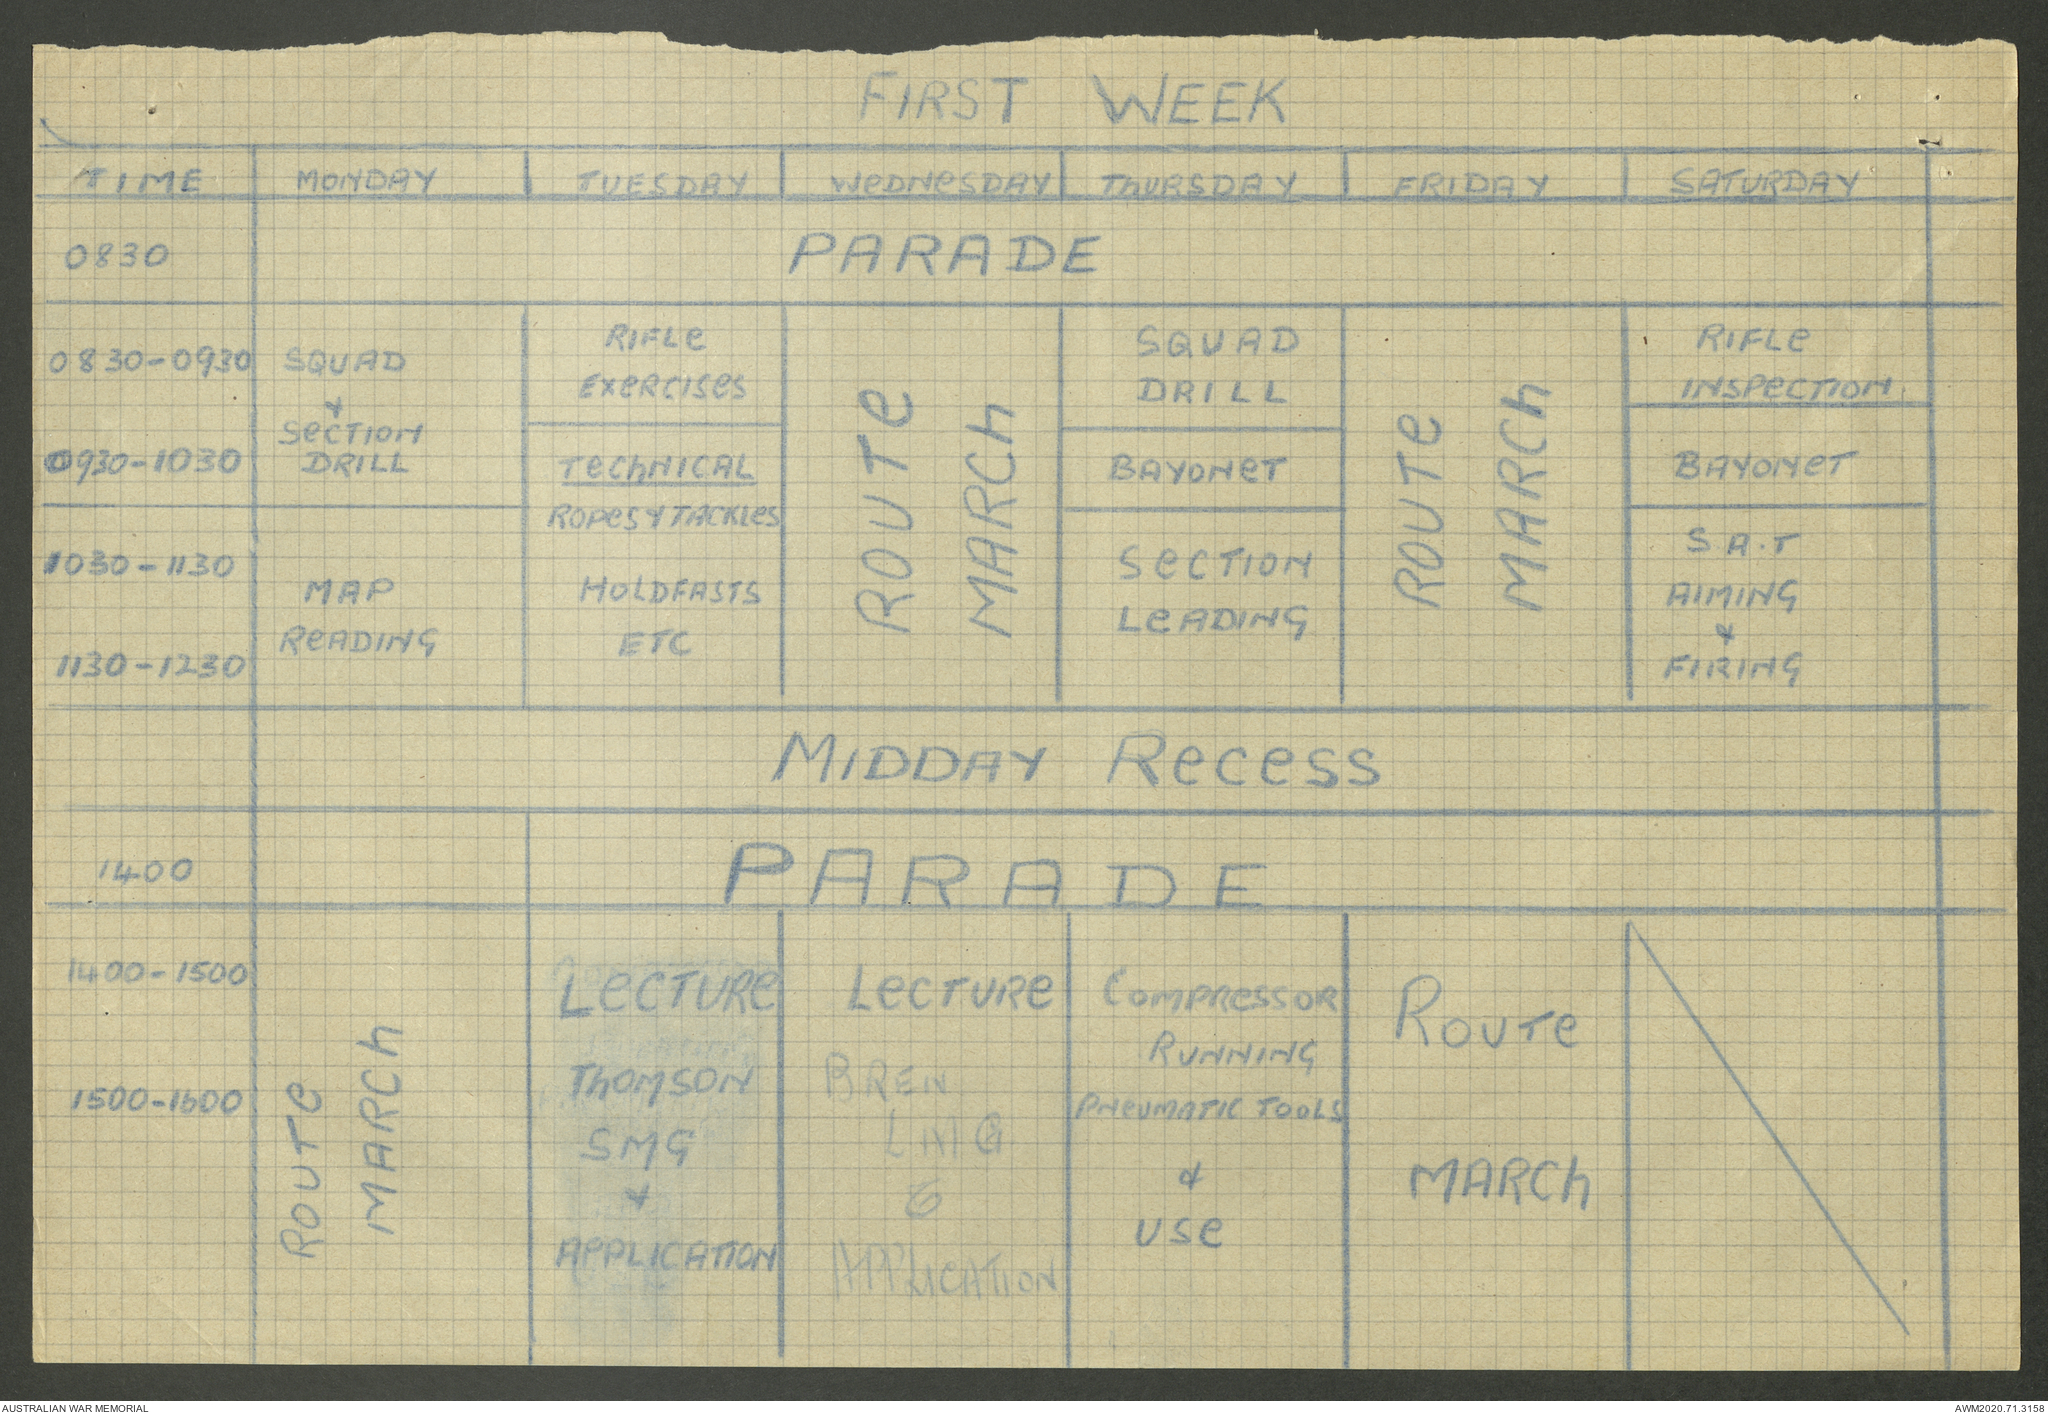 FIRST WEEK
TIME MONDAY TUESDAY WEDNESDAY THURSDAY FRIDAY SATURDAY
0830 PARADE
0830-0930
0930-1030
1030-1130
1130-1230
SQUAD
&
SECTION
DRILL
MAP
READING
RIFLE
EXERCISES
TECHNICAL
ROPES & TACKLES
HOLDFASTS
ETC
ROUTE
MARCH
SQUAD
DRILL
BAYONET
SECTION
LEADING
ROUTE
MARCH
RIFLE
INSPECTION.
BAYONET
S.A.T
AIMING
&
FIRING
MIDDAY RECESS
1400 PARADE
1400-1500
1500-1600
ROUTE
MARCH
LECTURE
THOMSON
SMG
&
APPLICATION
LECTURE
BREN
LMG
&
APPLICATION
COMPRESSOR
RUNNING
PNEUMATIC TOOLS
&
USE
ROUTE
MARCH
AUSTRALIAN WAR MEMORIAL
AWM2020.71.3158